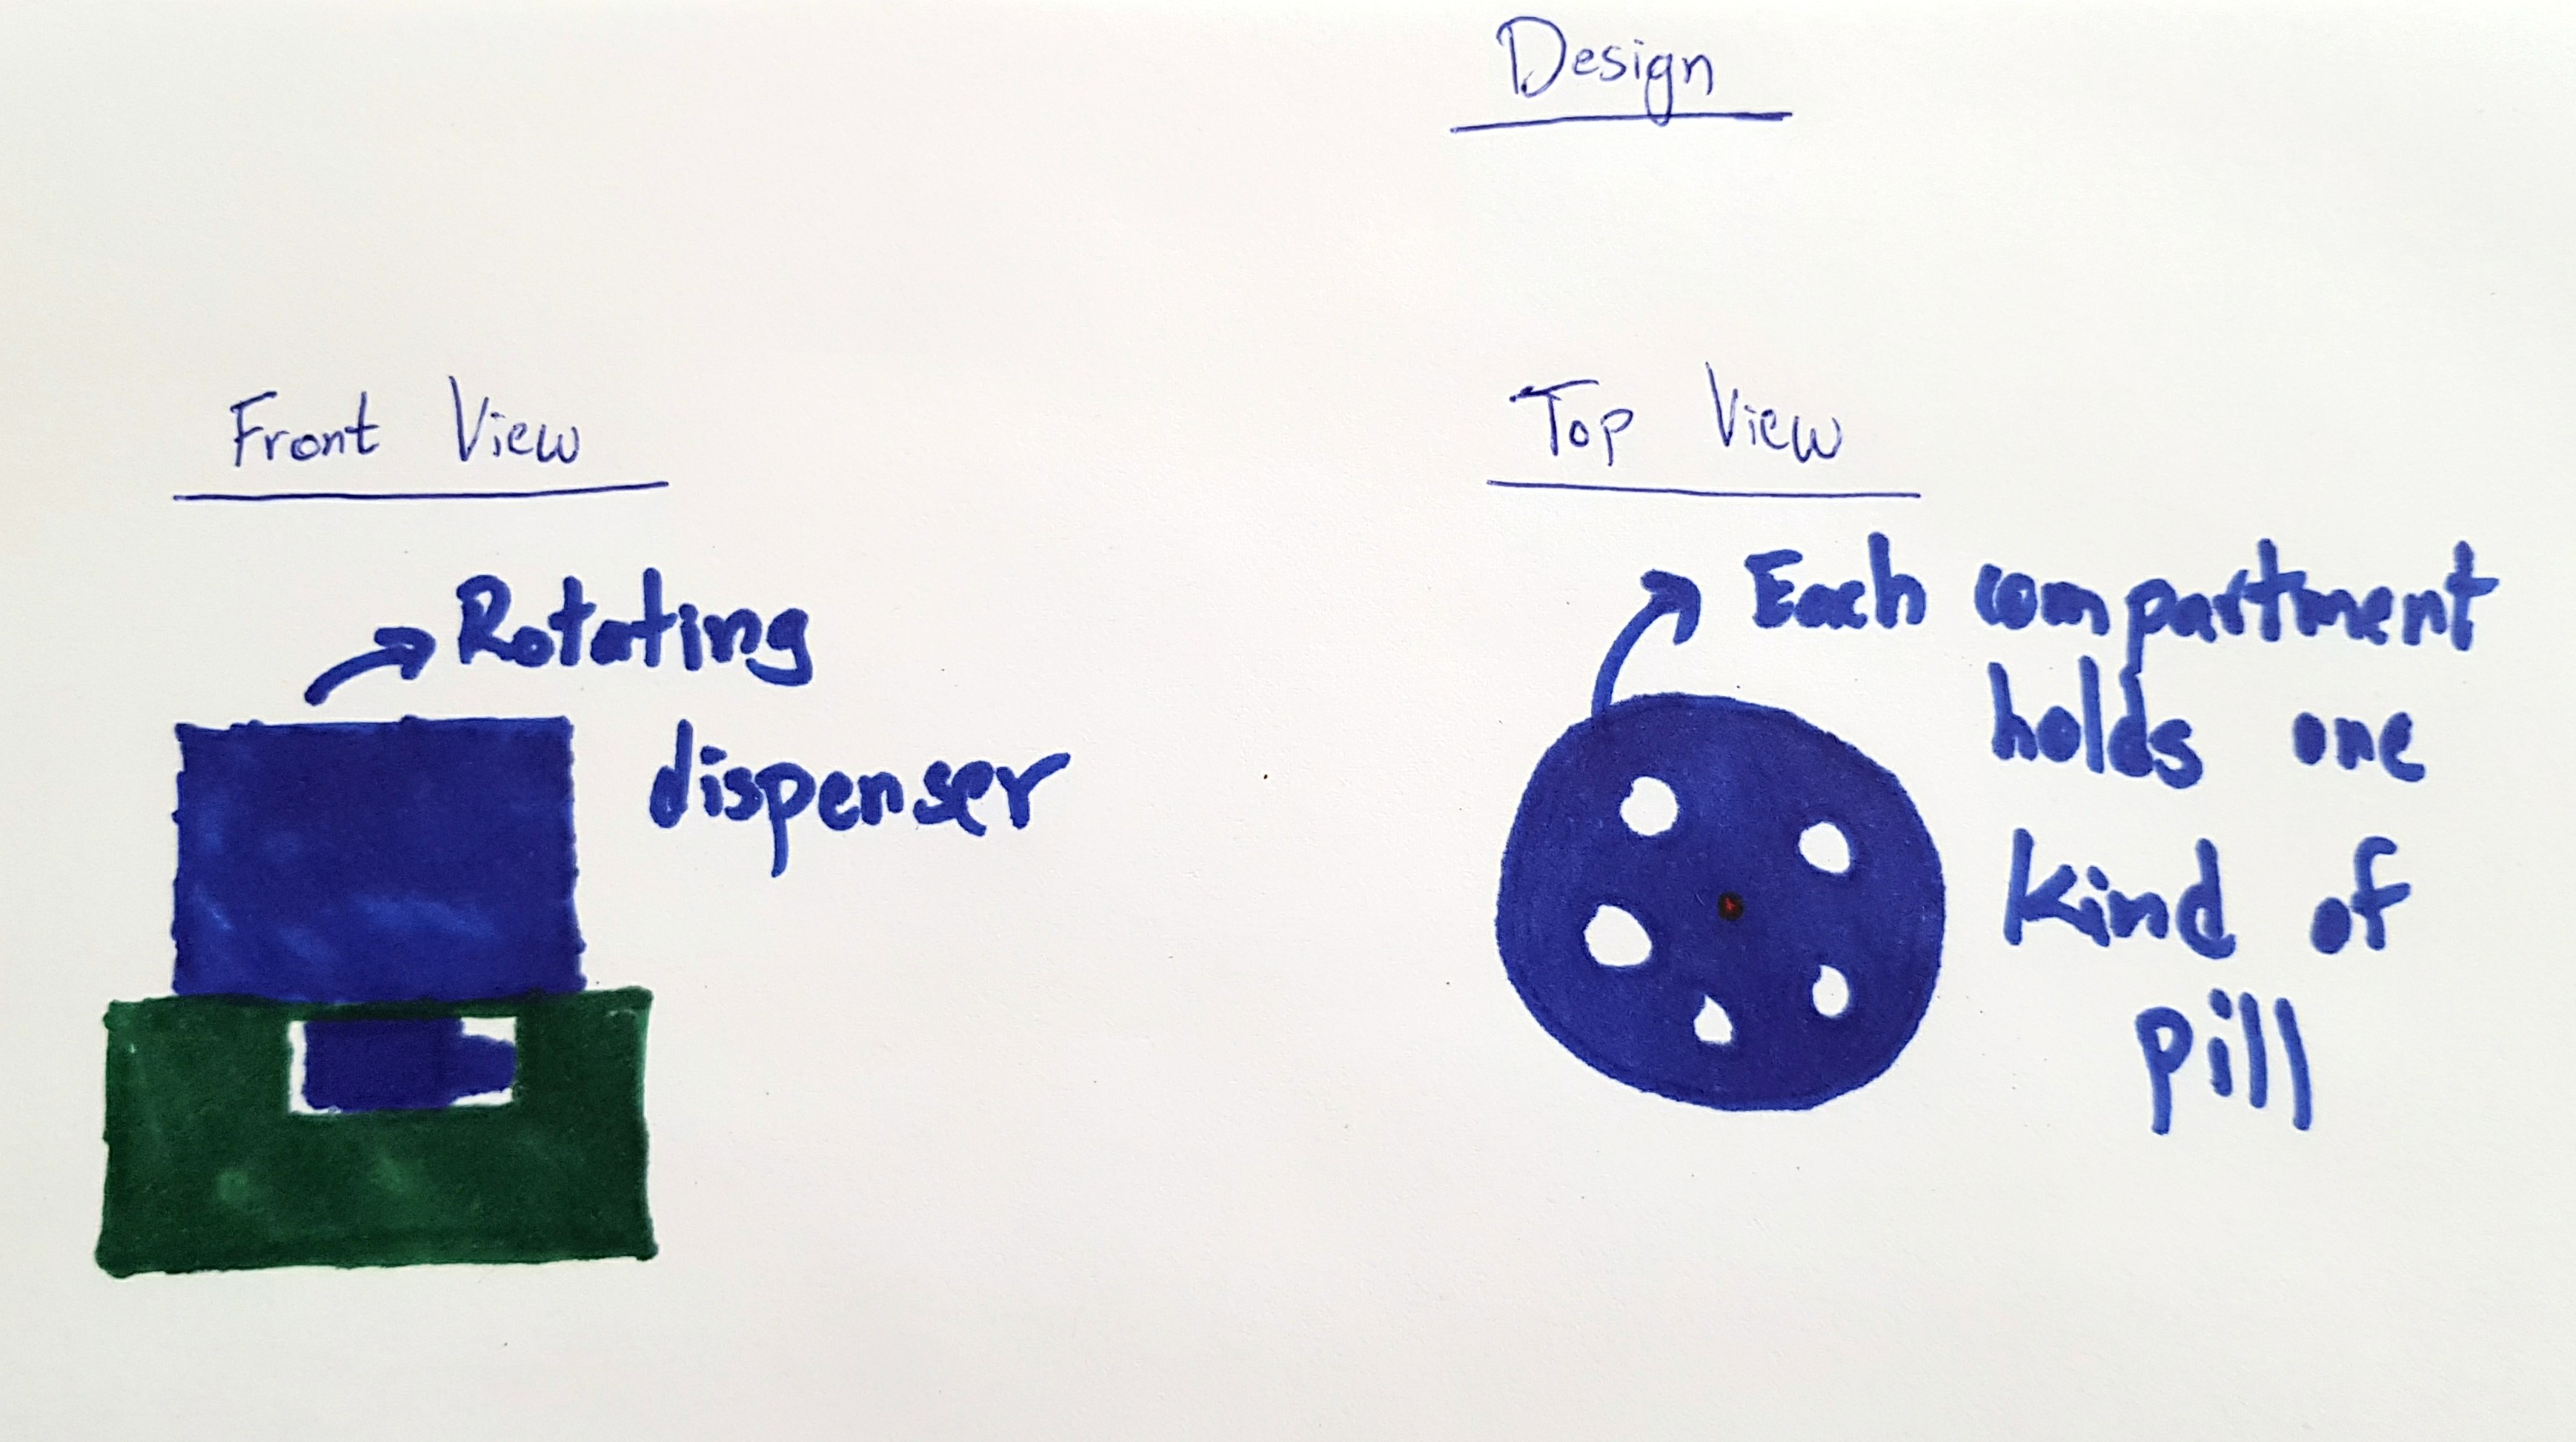 Design
Front View
Rotating
dispenser
Top View
Each compartment
holds one
kind of
pill